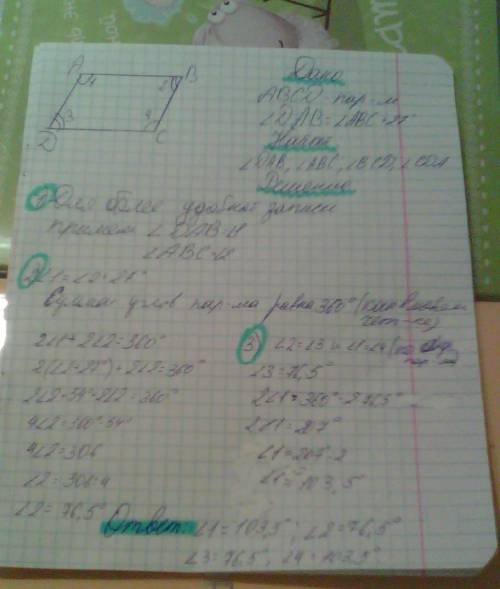 A
4
2
B
3
4
D
C
Дано
ABCD - пар-м
∠DAB - ∠ABC = 27°
Найти
∠DAB, ∠ABC, ∠BCD, ∠CDA
Решение
1) Для более удобной записи
примем ∠DAB - ∠1
∠ABC - ∠2
2) ∠1 = ∠2 + 27°
Сумма углов пар-ма равна 360° (как
чет-ка)
2∠1 + 2∠2 = 360°
2(∠2 + 27°) + 2∠2 = 360°
2∠2 + 54° + 2∠2 = 360°
4∠2 = 360° - 54°
4∠2 = 306
∠2 = 306 : 4
∠2 = 76,5°
3) ∠2 = ∠3 и ∠1 = ∠4 (по
∠3 = 76,5°
2∠1 = 360° - 2·76,5°
2∠1 = 207°
∠1 = 207 : 2
∠1 = 103,5°
Ответ: ∠1 = 103,5°; ∠2 = 76,5°
∠3 = 76,5°, ∠4 = 103,5°